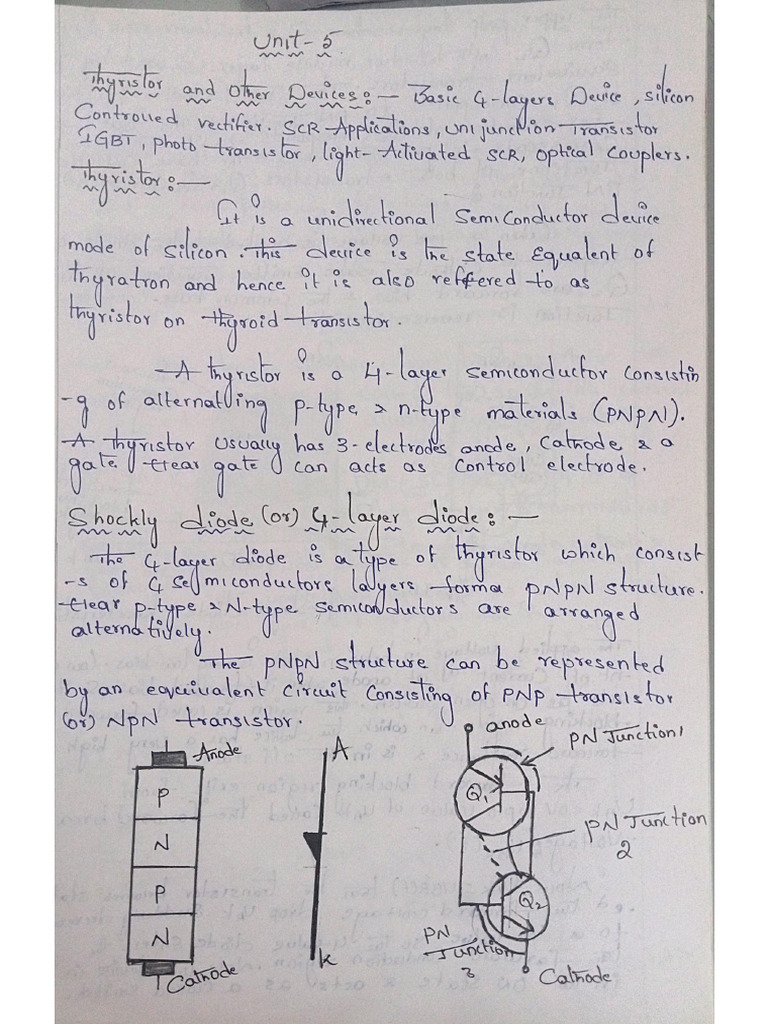 Unit-5
Thyristor and Other Devices:- Basic 4-layers Device, silicon
Controlled rectifier. SCR-Applications, unijunction Transistor
IGBT, photo transistor, light-Activated SCR, optical couplers.
Thyristor:-
It is a unidirectional semiconductor device
mode of silicon. This device is the state equalent of
thyratron and hence it is also reffered to as
thyristor on thyroid transistor.
A thyristor is a 4-layer semiconductor consistin
-g of alternating p-type & n-type materials (PNPN).
A thyristor usually has 3-electrodes anode, cathode & a
gate. gate can acts as control electrode.
Shockly diode (or) 4-layer diode:-
The 4-layer diode is a type of thyristor which consist
-s of 4 semiconductors layers forma PNPN structure.
p-type & N-type semiconductors are arranged
alternatively.
The PNPN structure can be represented
by an equivalent circuit consisting of PNP transistor
(or) NPN transistor.
Anode
P
N
P
N
Cathode
A
K
anode
PN Junction 1
Q1
PN Junction
2
Q2
PN
Junction
3
Cathode